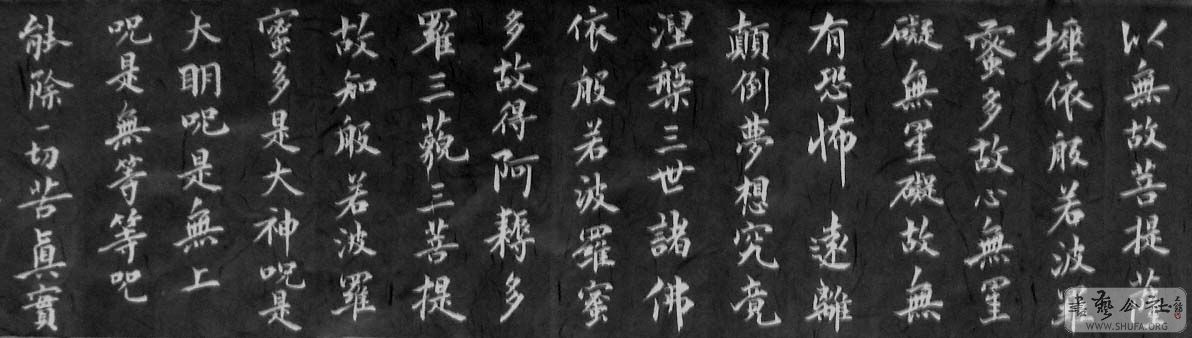 以無故菩提薩
埵依般若波羅
蜜多故心無罣
礙無罣礙故無
有恐怖 遠離
顛倒夢想究竟
涅槃三世諸佛
依般若波羅蜜
多故得阿耨多
羅三藐三菩提
故知般若波羅
蜜多是大神呪是
大眀呪是無上
呪是無等等呪
能除一切苦眞實
書藝公社
WWW.SHUFA.ORG